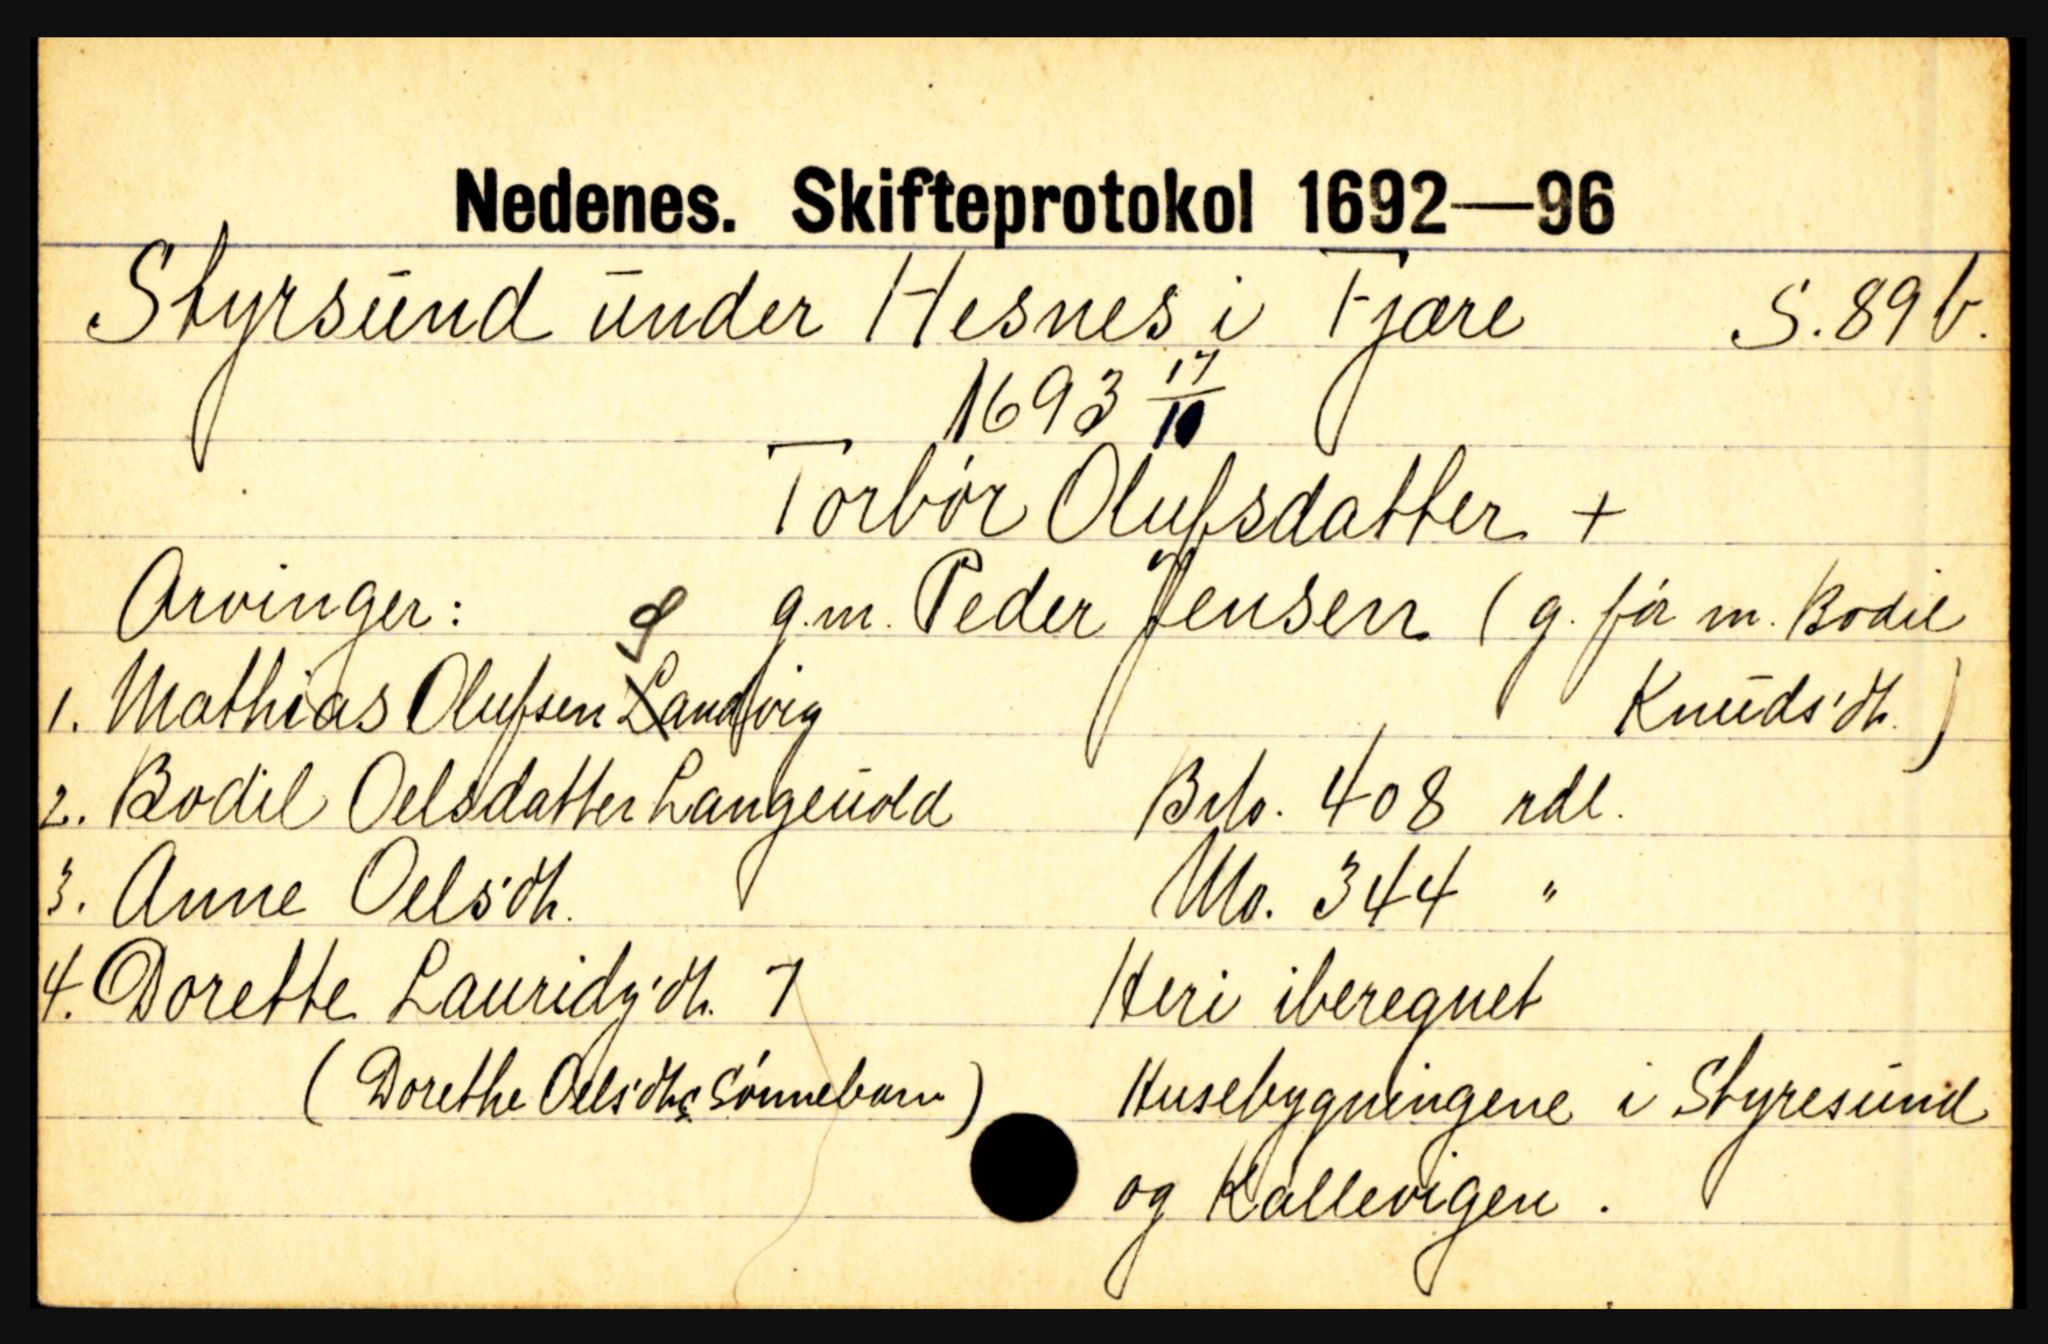 Nedenes. Skifteprotokol 1692—96
Styrsund under Hesnes i Fjære S. 89 b.
1693 17/10
Torbór Olufsdatter +
Arvinger: g.m. Peder Jensen (g. før m. Bodil
1. Mathias Olufsen Sandvig Knuds'dtr.)
2. Bodil Oelsdatter Langeuold Brto. 408 rdl.
3. Anne Oels'dtr. Nto. 344 "
4. Dorette Lauridz'dtr. † Heri iberegnet
(Dorethe Oels'dtrs Sønnebarn) Husebygningene i Styresund
og Kallevigen.